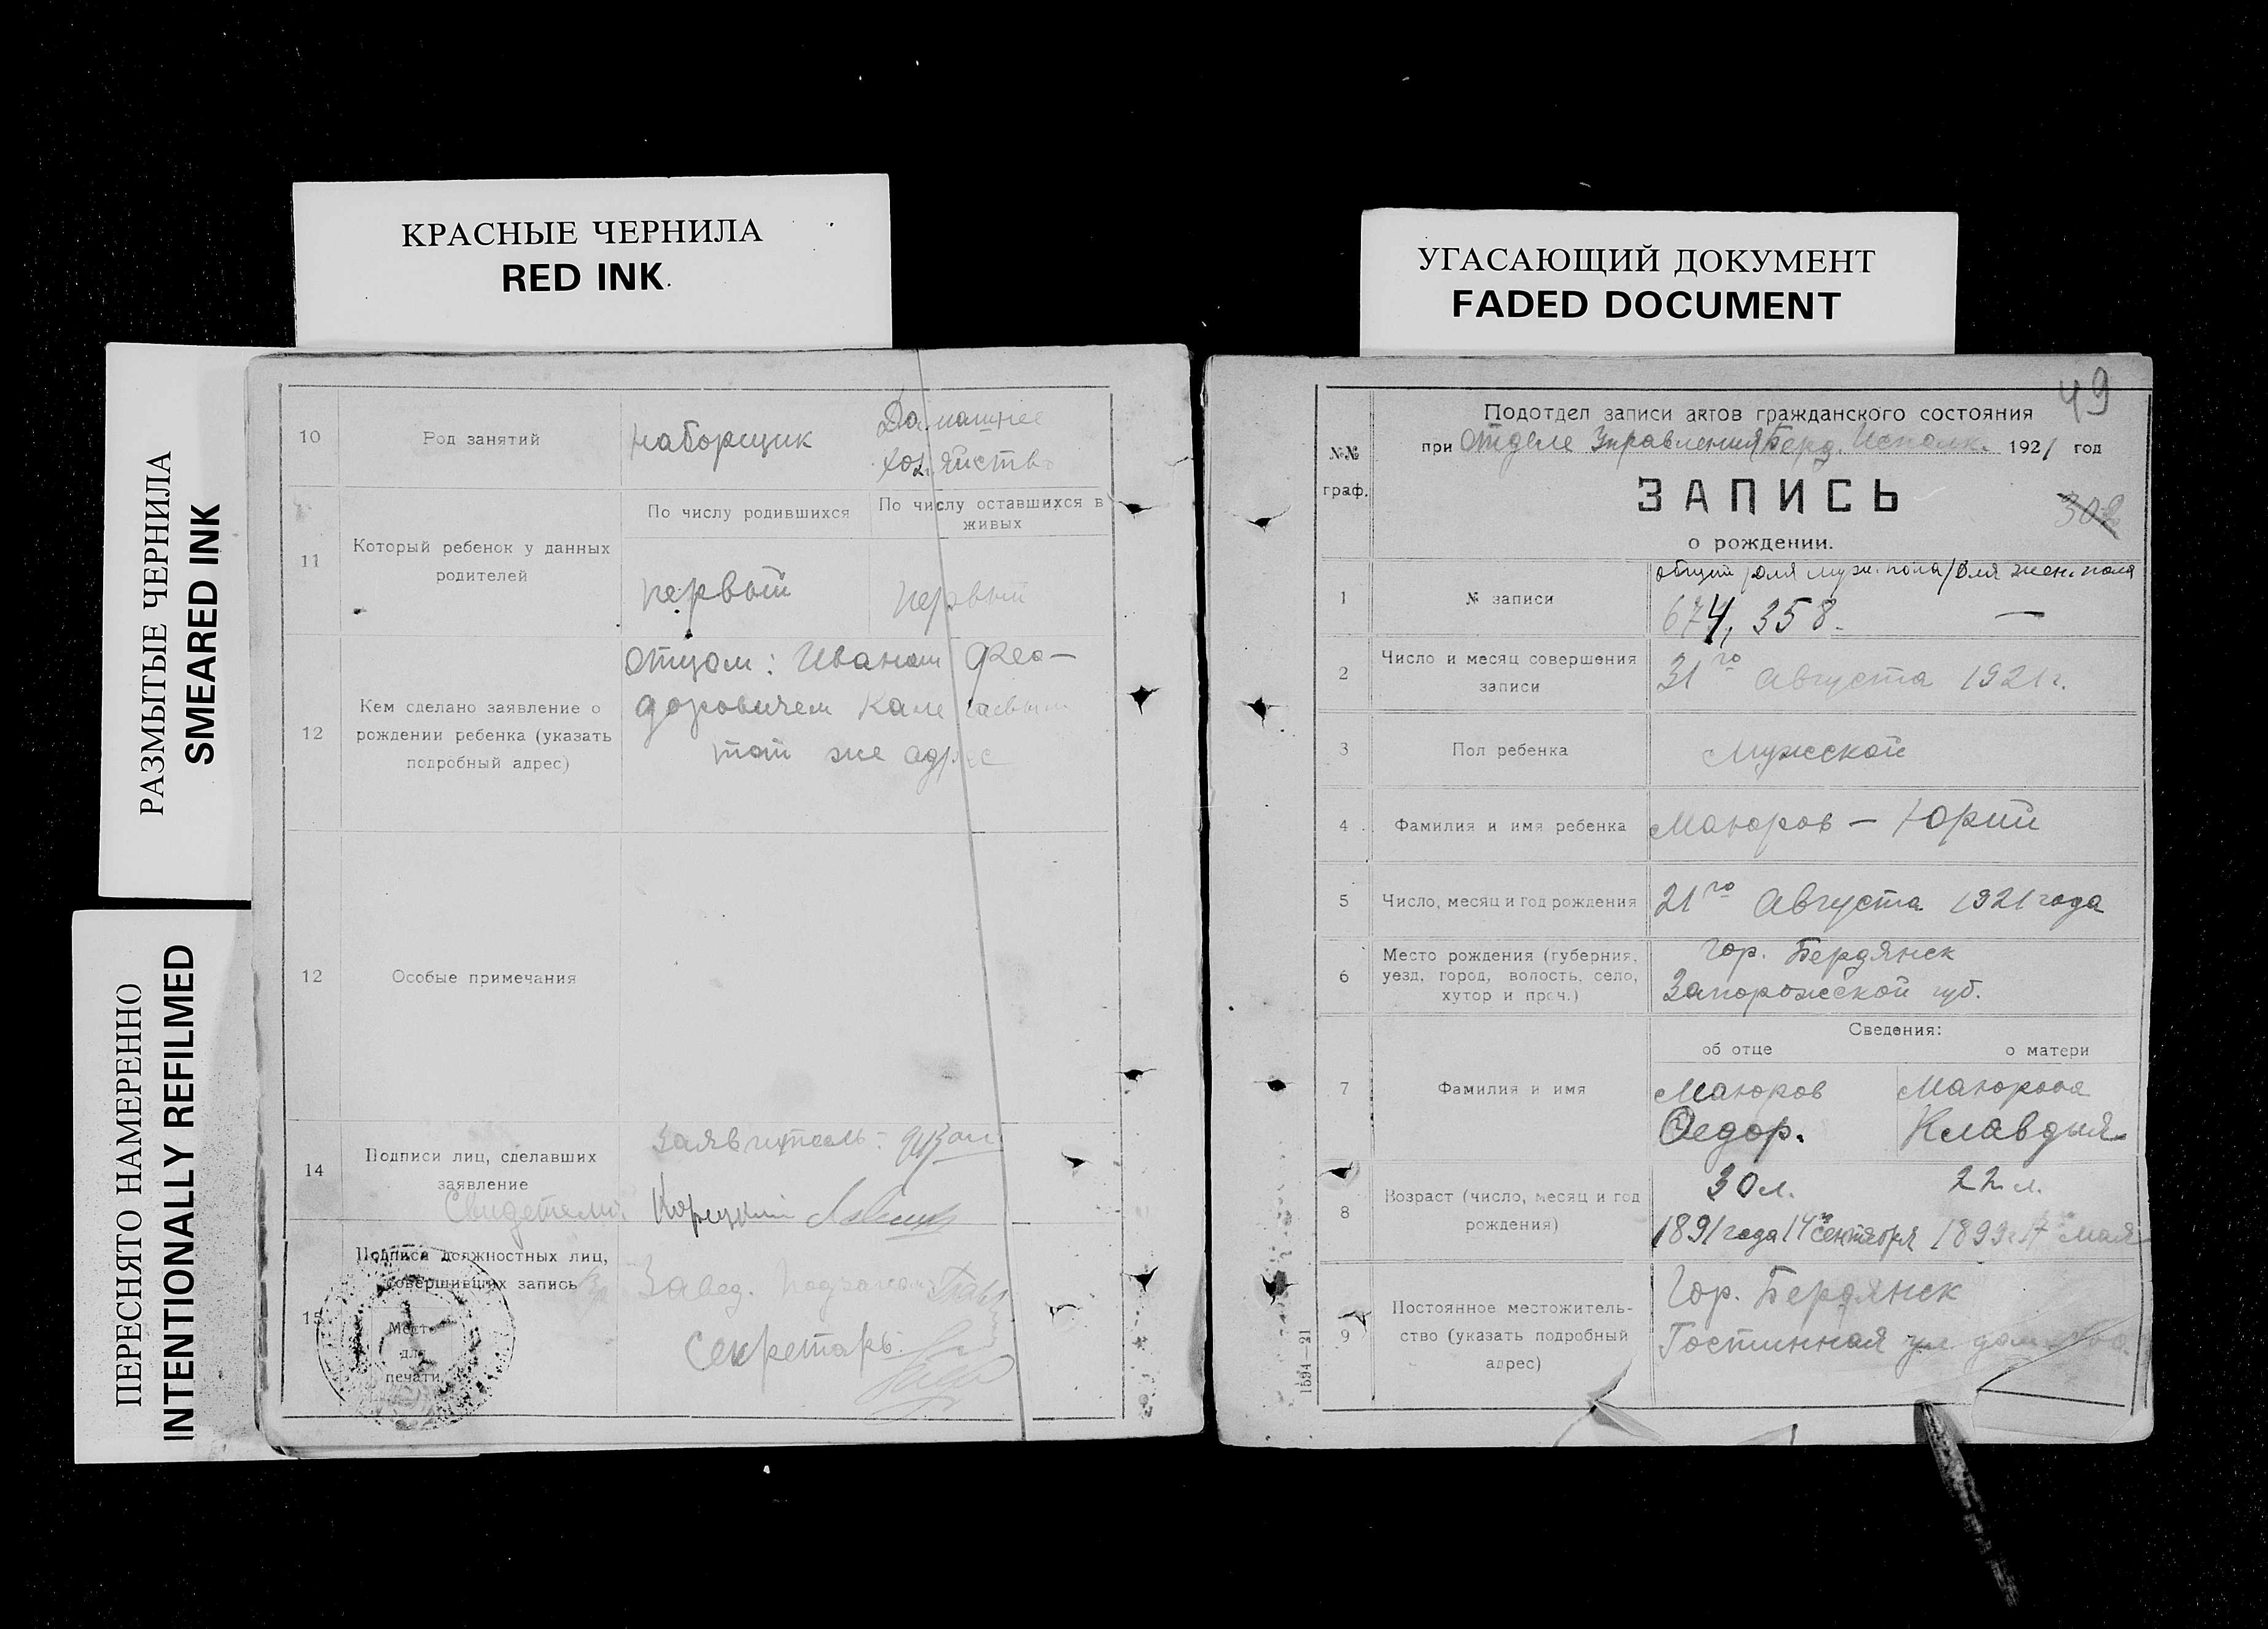 КРАСНЫЕ ЧЕРНИЛА
RED INK
УГАСАЮЩИЙ ДОКУМЕНТ
FADED DOCUMENT
РАЗМЫТЫЕ ЧЕРНИЛА
SMEARED INK
ПЕРЕСНЯТО НАМЕРЕННО
INTENTIONALLY REFILMED
10
Род занятий
наборщик
Домашнее
хозяйство
11
Который ребенок у данных
родителей
По числу родившихся
По числу оставшихся в
живых
первый
первый
12
Кем сделано заявление о
рождении ребенка (указать
подробный адрес)
отцом: Иваном Фео-
доровичем
тот же адрес
12
Особые примечания
14
Подписи лиц, сделавших
заявление
Свидетели:
Заявитель:
Корецкий
15
Подписи должностных лиц,
совершивших запись
Место
для
печати
Завед.
Секретарь
49
№№
граф.
Подотдел записи актов гражданского состояния
при Отделе Управления Берд. Исполк. 1921 год
ЗАПИСЬ
302
о рождении.
1
№ записи
общий /для муж. пола/для жен. пола
674, 358. —
2
Число и месяц совершения
записи
31го Августа 1921 г.
3
Пол ребенка
Мужской
4
Фамилия и имя ребенка
Маюров — Юрий
5
Число, месяц и год рождения
21го Августа 1921 года
6
Место рождения (губерния,
уезд, город, волость, село,
хутор и проч.)
Гор. Бердянск
Запорожской губ.
Сведения:
об отце
о матери
7
Фамилия и имя
Маюров
Федор.
Маюрова
Клавдия
8
Возраст (число, месяц и год
рождения)
30 л.
22 л.
1891 года 14 сентября
1899 г. 17 мая
9
Постоянное местожитель-
ство (указать подробный
адрес)
Гор. Бердянск
Гостинная ул. дом
1594—21